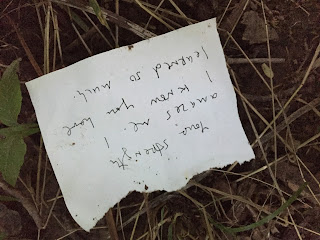 Your strength
amazes me. I
know you have
learned so
much.